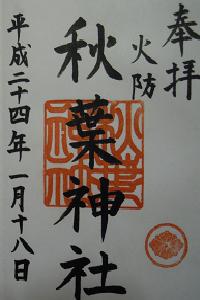 奉拝
火防
秋葉神社
平成二十四年一月十八日